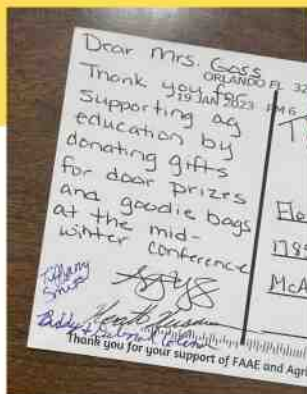 Dear Mrs. Gass
ORLANDO FL 32
Thank you for
19 JAN 2023 PM 6
supporting ag
education by
donating gifts
for door prizes
and goodie bags
at the mid-
winter conference
Tiffany
Thank you for your support of FAAE and Agri
T
Ele
1785
McA